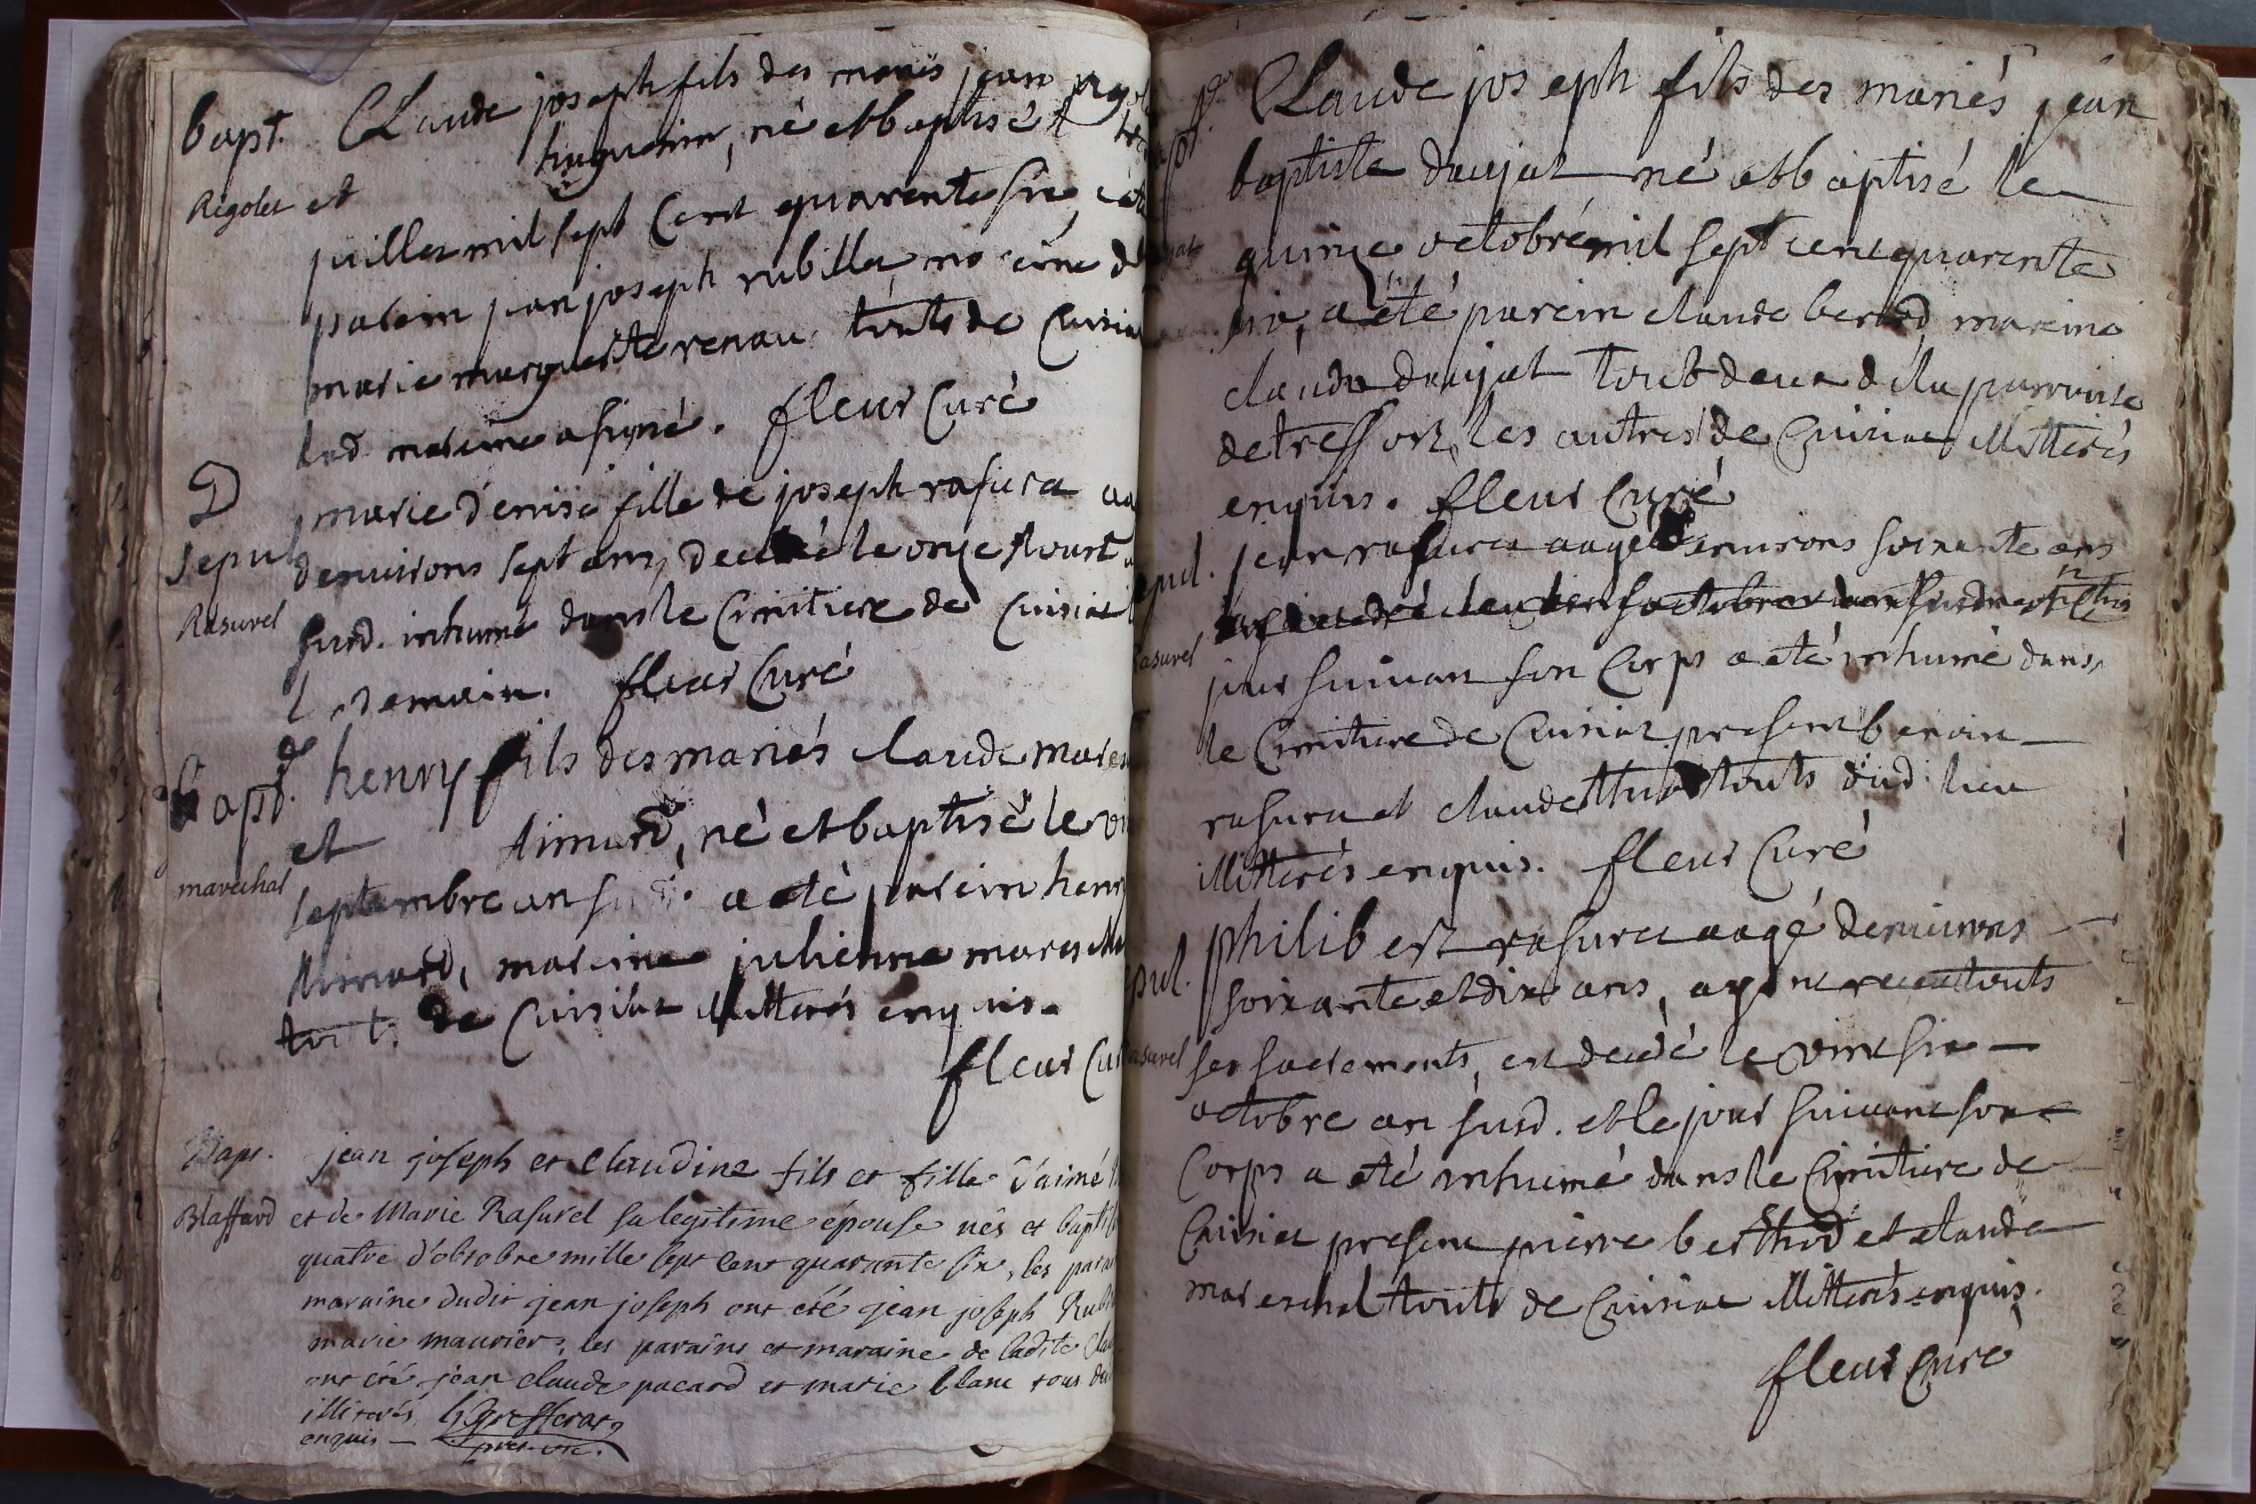 bapt. Claude joseph fils des mariés jean rigol
Rigolet et huguenin, né et baptisé
juillet mil sept cent quarente six,
parein jean joseph rubillu mareine
marie marguerite renau touts de Cuisia
lad mareine a signé. fleur Curé
sepul marie denise fille de joseph rasurel
denvirons sept ans, decedé le onze aoust
Rasurel susd. inhumé dans le Cimitiere de Cuisiat
l demain. fleur Curé
bapt. henry fils des mariés claude mares
et Aimard, né et baptisé le
marechal
septembre an a eté parein henry
Aimard, mareine julienne mares
de Cuisiat illitterés enquis.
fleur Cu
Bapt. jean joseph et Claudine fils et fille d'aimé
Blaffard et de Marie Rasurel sa legitime épouse nés et bapti
quatre d'obtobre mille sept cent quarante six, les para
maraine dudit jean joseph ont eté jean joseph Rub
marie maurier, les parains et maraine de ladite Clau
ont été jean claude pacard et marie blanc tous
illiterés
enquis
Claude joseph fils des mariés jean
baptiste daujat né et baptisé le
quinze octobre mil sept cent quarente
six, a eté parein claude berard, mareine
claude daujat tout deux de la parroisse
de tressort, les autres de Cuisiat illitterés
enquis. fleur Curé
epul. jean rasurel aagé denvirons soixante ans
asurel
jour suivan son Corps a eté inhumé dans
le Cimitiere de Cuisiat present benoin
rasurel et claude touts dud. lieu
illitterés enquis. fleur Curé
pul. philibert rasurel aagé denvirons
soixante et dix ans, ayant receu touts
asurel ses sacrements, est decedé le vint six
octobre an susd. et le jour suivant son
Corps a eté inhumé dans le Cimitiere de
Cuisiat present pierre berthod et claude
mareschal touts de Cuisiat illitterés enquis.
fleur Curé